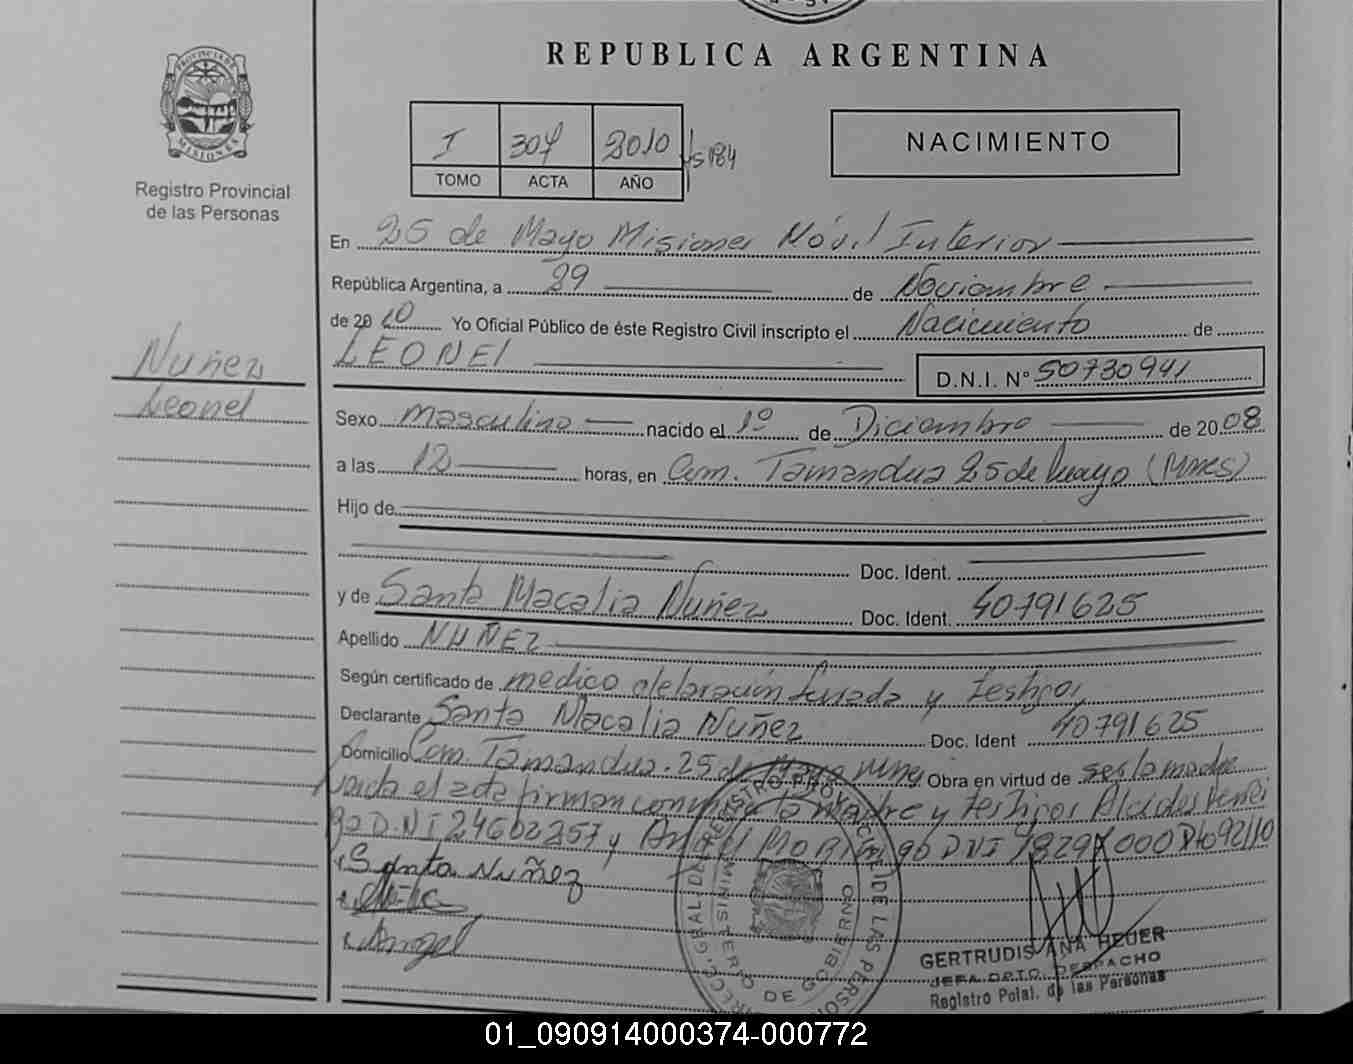 REPUBLICA ARGENTINA
PROVINCIA DE MISIONES
Registro Provincial
de las Personas
I 307 2010 Fs 184
TOMO ACTA AÑO
NACIMIENTO
En 25 de Mayo Misiones Móvil Interior
República Argentina, a 29 de Noviembre
de 2010 Yo Oficial Público de éste Registro Civil inscripto el Nacimiento de
LEONEL
D.N.I. N° 50730941
Nuñez
Leonel
Sexo masculino nacido el 1º de Diciembre de 2008
a las 12 horas, en Com. Tamandua 25 de Mayo (Mnes)
Hijo de
Doc. Ident.
y de Santa Macalia Nuñez Doc. Ident. 40791625
Apellido NUÑEZ
Según certificado de medico declaración Jurada y testigos
Declarante Santa Macalia Nuñez Doc. Ident 40791625
Domicilio Com. Tamandua. 25 de Mayo Mnes Obra en virtud de ser la madre
Leída el acta firman conmigo la madre y testigos Alcides
D.N.I 24602257 y DNI 000 Dto 92/10
Santa Nuñez
Angel
DIRECC. GRAL. DEL REGISTRO PROVINCIAL DE LAS PERSONAS
MINISTERIO DE GOBIERNO
GERTRUDIS ANA HEUER
JEFA DPTO. DESPACHO
Registro Pcial. de las Personas
01_090914000374-000772